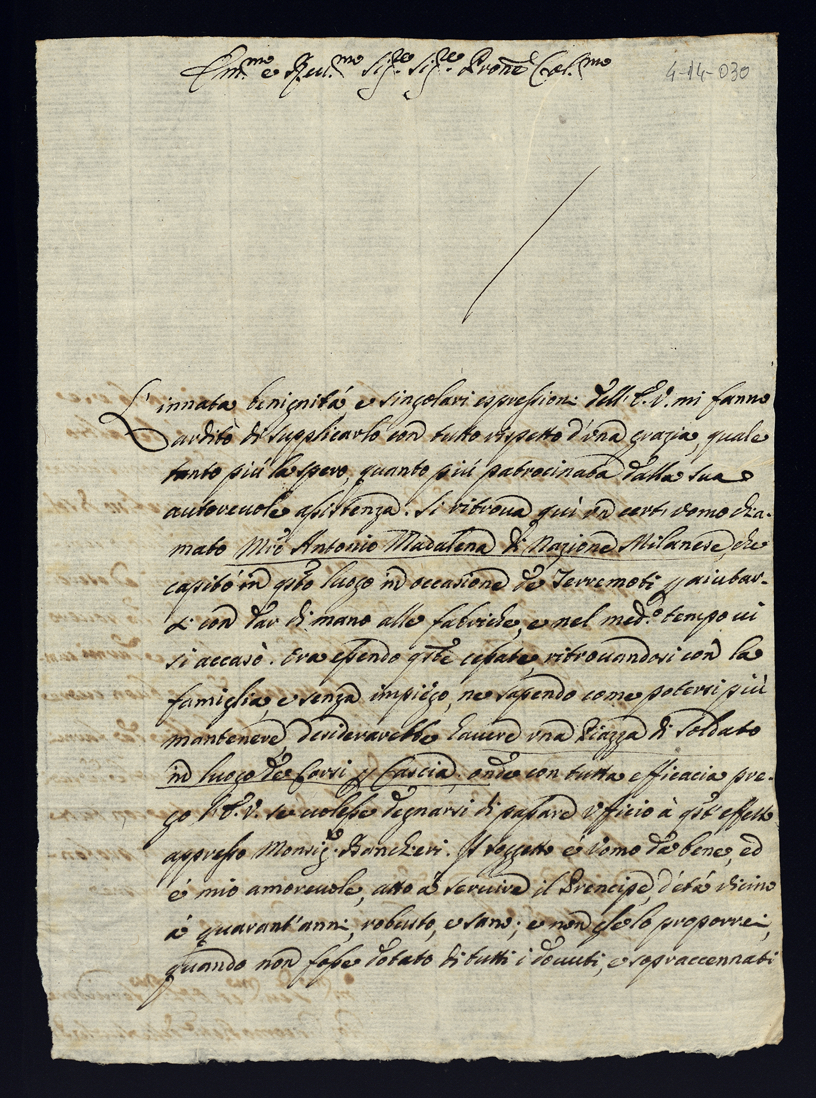 Em.mo e Reu.mo Sig.re Sig.re Prone Col.mo
4-14-030
L'innata benignità, e singolari espressioni dell'E.V. mi fanno
ardito di supplicarlo con tutto rispetto d'una grazia, quale
tanto più la spero, quanto più patrocinata dalla sua
autoreuole assistenza. Si ritroua quì un certo uomo chia-
mato Mro Antonio Madalena di Nazione Milanese, che
capitò in qsto luogo in occasione de Terremoti p aiutar-
si con dar di mano alle fabriche, e nel med.o tempo ui
si accasò. Ora essendo qste cessate, ritrouandosi con la
famiglia, e senza impiego, ne sapendo come potersi più
mantenere, desiderarebbe hauere una Piazza di Soldato
in luogo de Corsi p Cascia, onde con tutta efficacia pre-
go l'E.V. se uolesse degnarsi di passare ufficio à qst'effetto
appresso Monsig.re Bancheri. Il soggetto è uomo da bene, ed
è mio amoreuole, atto à seruire il Prencipe, d'età uicino
à quarant'anni, robusto, e sano; e non glelo proporrei,
quando non fosse dotato di tutti i douuti, e sopraccennati